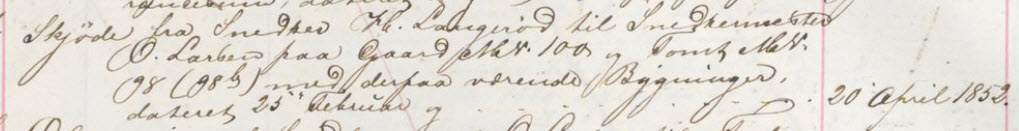 dateret
Skjøde fra Snedker Chr. Langerød til Snedkermester
O. Larsen paa Gaard Mk. No. 100 og Tomt Mk. No.
98 (98b) med derpaa værende Bygninger,
dateret 25de Februar og 20 April 1852.